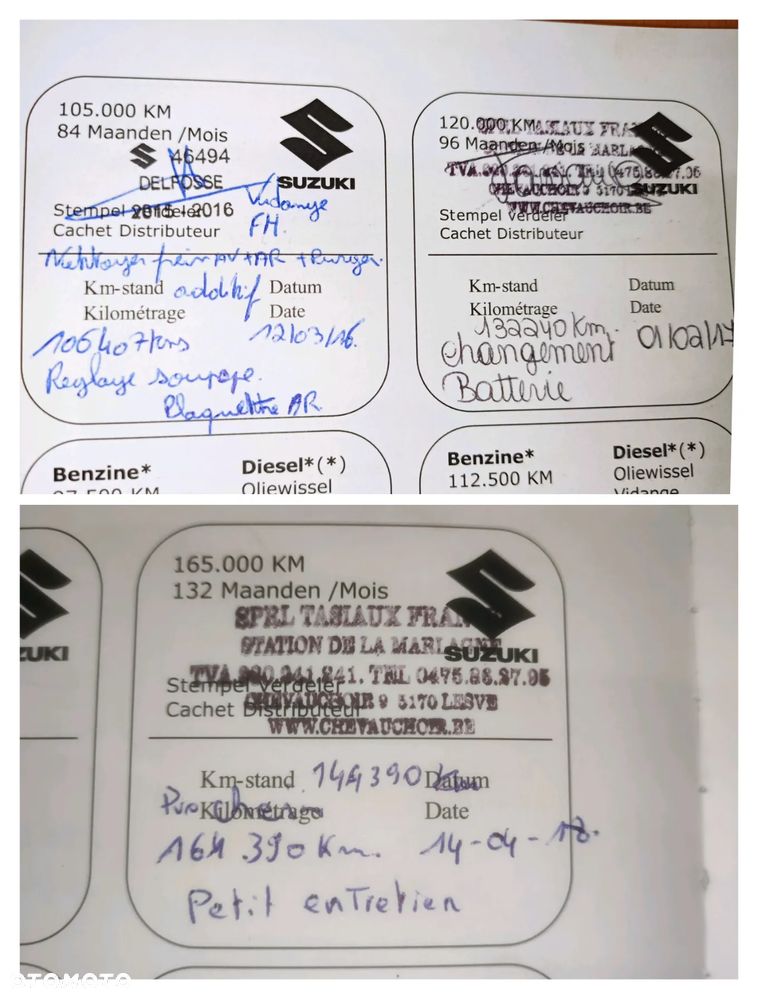 105.000 KM
84 Maanden /Mois
46494
DELFOSSE
SUZUKI
2015 - 2016
Stempel verdeler
Cachet Distributeur
Vidange
FH.
Nettoyer frein AV + AR + Purger
Km-stand additif Datum
Kilométrage Date
106407kms 12/03/16
Reglage soupape.
Plaquette AR
120.000 KM
96 Maanden /Mois
SPRL TASIAUX FRAN
SUZUKI
WWW.CHEVAUCHOIR.BE
Stempel verdeler
Cachet Distributeur
Km-stand Datum
Kilométrage Date
132240 Km. 01/02/17
changement
Batterie
Benzine* Diesel*(*)
97.500 KM Oliewissel
Benzine* Diesel*(*)
112.500 KM Oliewissel
Vidange
ZUKI
165.000 KM
132 Maanden /Mois
SPRL TASIAUX FRAN
STATION DE LA MARLAGNE
SUZUKI
TVA. 241.241. TEL 0475.88.27.05
Stempel verdeler
CHEVAUCHOIR 9 5170 LESVE
Cachet Distributeur
WWW.CHEVAUCHOIR.BE
Km-stand 144390 Km Datum
Kilométrage Date
164.390 Km. 14-04-18.
Petit entretien
OTOMOTO